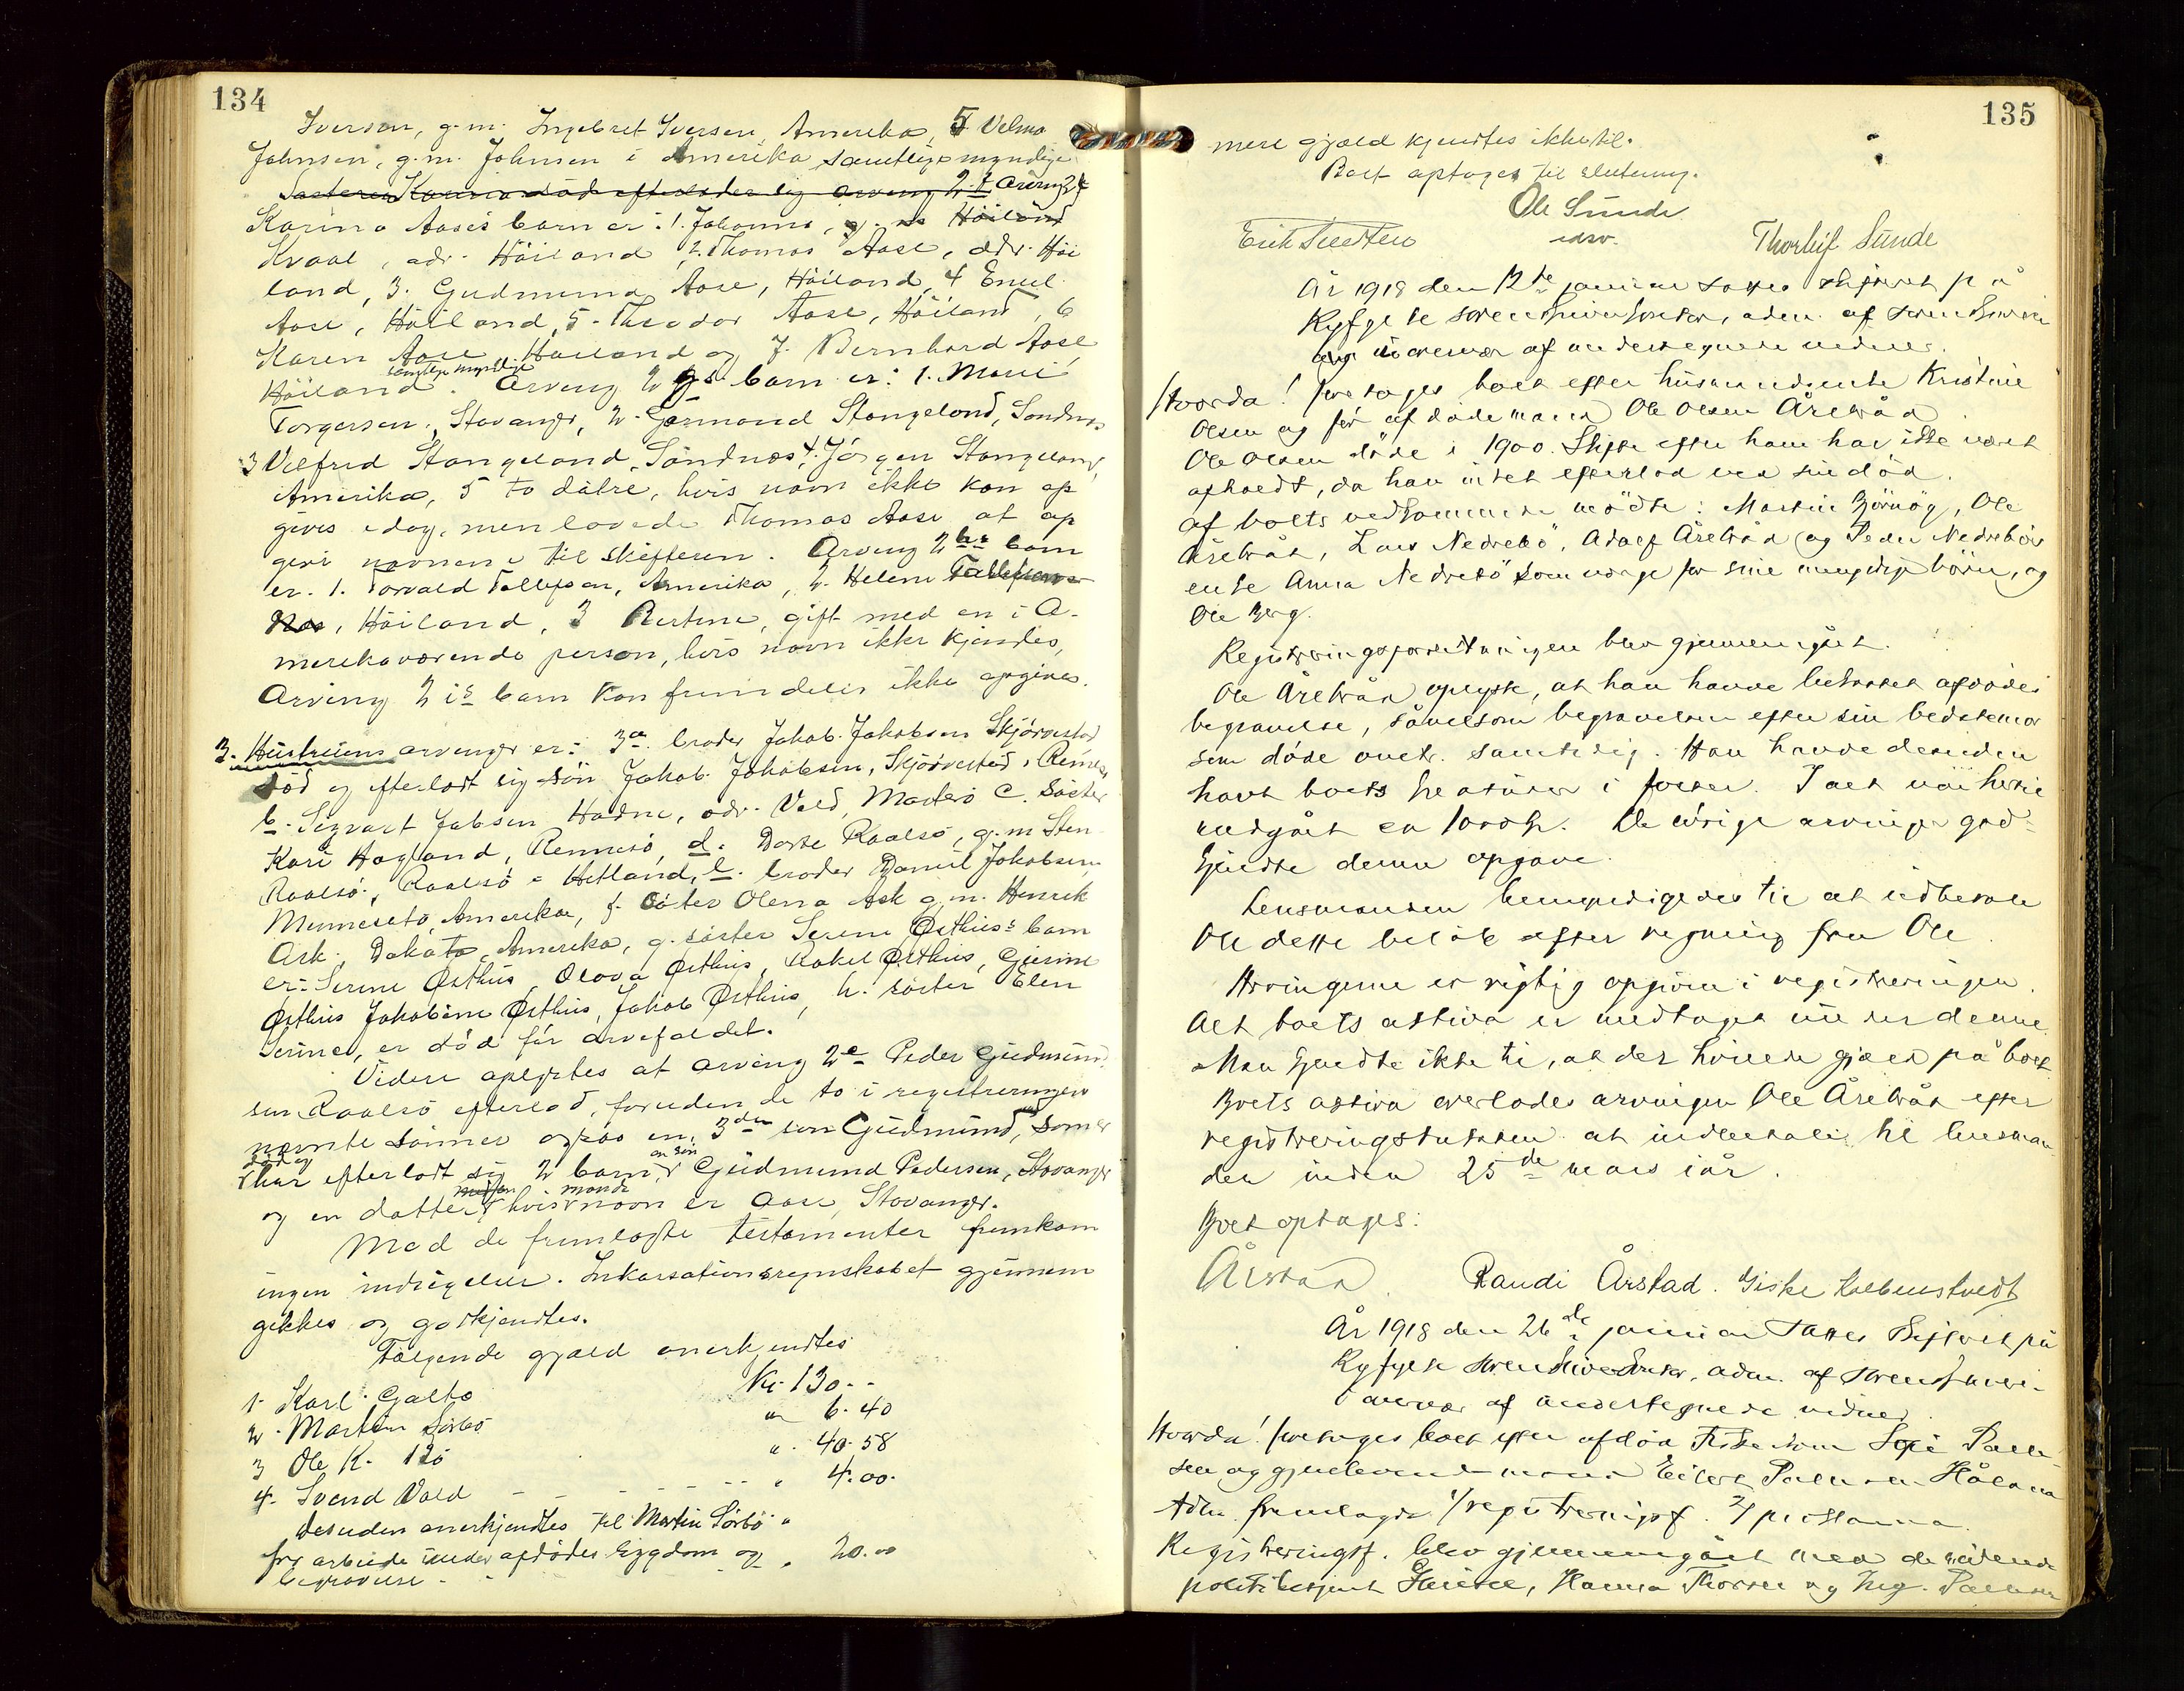 134
Iversen, g.m. Ingebret Iversen, Amerika, 5 Velma
Johnsen, g.m. Johnsen i Amerika samtlige myndige
Søsteren Karina død efterlader sig arving 2 f Arving 2 f
Karina Aases barn er: 1. Johanna, g. m. Høiland
Kvaal, adr. Høiland, 2. Thomas Aase, adr. Høi
land, 3. Gudmund Aase, Høiland, 4 Emil
Aase, Høiland, 5. Theodor Aase, Høiland, 6
Karen Aase Høiland og 7. Bernhard Aase
samtlige myndige
Høiland. Arving 2 gs barn er: 1. Marie
Torgersen, Stavanger, 2. Gørmand Stangeland, Sandnes
3 Vilfred Stangeland, Sandnes, 4. Jørgen Stangeland,
Amerika, 5 to døtre, hvis navn ikke kan op
gives idag, men lovede Thomas Aase at op
give navnene til skifteren. Arving 2 hs barn
er. 1. Torvald Tollefsen, Amerika, 2. Helene Tollefsen
Næs, Høiland, 3 Bertine, gift med en i A-
merika værende person, hvis navn ikke kjendes,
Arving 2 is barn kan fremdeles ikke opgives.
3. Hustruens arvinger er: 3a. broder Jakob Jakobsen Skjørvestad
død og efterlodt sig søn Jakob Jakobsen, Skjørvestad, Rennesø
b. Sigvart Jabsen Hadne, adr. Vold, Mosterø c. Søster
Kari Hagland, Rennesø, d. Dorte Roalsø, g.m Sten
Roalsø, Roalsø i Hetland, e. broder Daniel Jakobsen,
Minnesota, Amerika, f. Søster Olena Ask g.m. Henrik
Ask, Dakota, Amerika, g. søster Serine Østhus's barn
er: Serine Østhus, Olava Østhus, Rakel Østhus, Gurine
Østhus Jakobine Østhus, Jakob Østhus, h. søster Elen
Serine, er død før arvefaldet.
Videre oplystes at arving 2e Peder Gudmund
sen Roalsø efterlod, foruden de to i registreringen
nævnte sønner også en 3den søn Gudmund, som er
død og
har efterlodt sig 2 barn en søn Gudmund Pedersen, Stavanger
og en datter hvis mands navn er Aase, Stavanger.
Mod de fremlagte testamenter fremkom
ingen indsigelser. Inkassationsregnskabet gjennem
gikkes og godkjendtes.
Følgende gjæld anerkjendtes
1. Karl Galta Kr. 130. -
2. Morten Sørbø " 6. 40
3 Ole K. Bø " 40. 58
4. Svend Vold - - - " 4. 00.
desuden anerkjendtes til Martin Sørbø "
for arbeide under afdødes sygdom og " 20. 00
begravelse -
135
mere gjæld kjendtes ikke til.
Boet optoges til slutning.
Ole Sunde
edsv.
Erik Tuesten Thorleif Sunde
År 1918 den 12te januar sattes skifteret på
Ryfylke sorenskriverkontor, adm. af sorenskriveren
i overvær af undertegnede vidner.
Hvorda! foretoges boet efter husmandsenke Kristine
Olsen og før afdøde mand Ole Olsen Årebråd.
Ole Olsen døde i 1900. Skifte efter ham har ikke været
afholdt, da han intet efterlod ved sin død.
af boets vedkommende mødte: Martin Bjørnøg, Ole
Årebråd, Lars Nedrebø, Adolf Årebråd og Peder Nedrebøs
enke Anna Nedrebø som værge for sine umyndige børn, og
Ole Berg.
Registreringsforretningen blev gjennemgået.
Ole Årebråd oplyste, at han havde bekostet afdødes
begravelse, såvelsom begravelsen efter sin bedstemor
som døde omtr. samtidig. Han havde desuden
havt boets kreaturer i foster. I alt var hertil
medgået ca 100 kr. De øvrige arvinger god-
kjendte denne opgave.
Lensmanden bemyndigedes til at udbetale
Ole dette beløb efter regning fra Ole.
Arvingerne er rigtig opgivne i registreringen.
Alt boets aktiva er medtaget under denne.
Man kjendte ikke til, at der hviler gjæld på boet
Boets aktiva overlades arvingen Ole Årebråd efter
registreringstaksten at indbetale til lensman
den inden 25de mars iår.
Boet optoges:
Årstad. Randi Årstad. Giske Kolbenstvedt
År 1918 den 26de januar sattes skifteret på
Ryfylke sorenskriverkontor, adm. af sorenskriveren
i overvær af undertegnede vidner
Hvorda! foretoges boet efter afdød
sen og gjenlevende mand Eilert Paulsen Håland
Adm. fremlagde 1/ registreringsf. 2/
Registreringsf. blev gjennemgået med de mødende
politibetjent, Hanna Thorsen og Ing. Paulsen